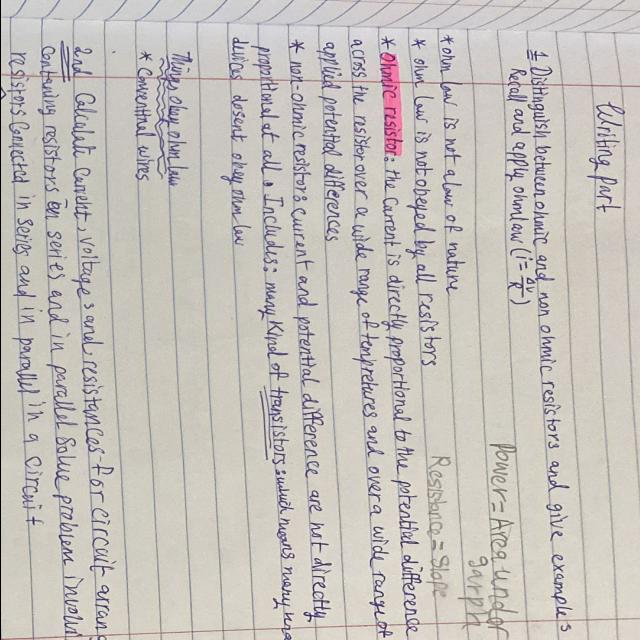 Writing part
1 Distinguish between ohmic and non ohmic resistors and give examples
Recall and apply ohm law (i = ΔV/R)
Power = Area under
garph
* ohm law is not a law of nature
Resistance = Slope
* ohm law is not obeyed by all resistors
* Ohmic resistor: the current is directly proportional to the potential difference
across the resistor over a wide range of tempretures and over a wide range of
applied potential differences
* non-ohmic resistor: current and potential difference are not directly
proportional at all. Includes: many kind of transistors: which means many
devices desont obey ohm law
Things obey ohm law
* Conventnal wires
2nd Calculate Current, voltages and resistances for circuit arrang
Containing resistors in series and in parallel Solve problems involvi
resistors Connected in series and in parallel in a circuit